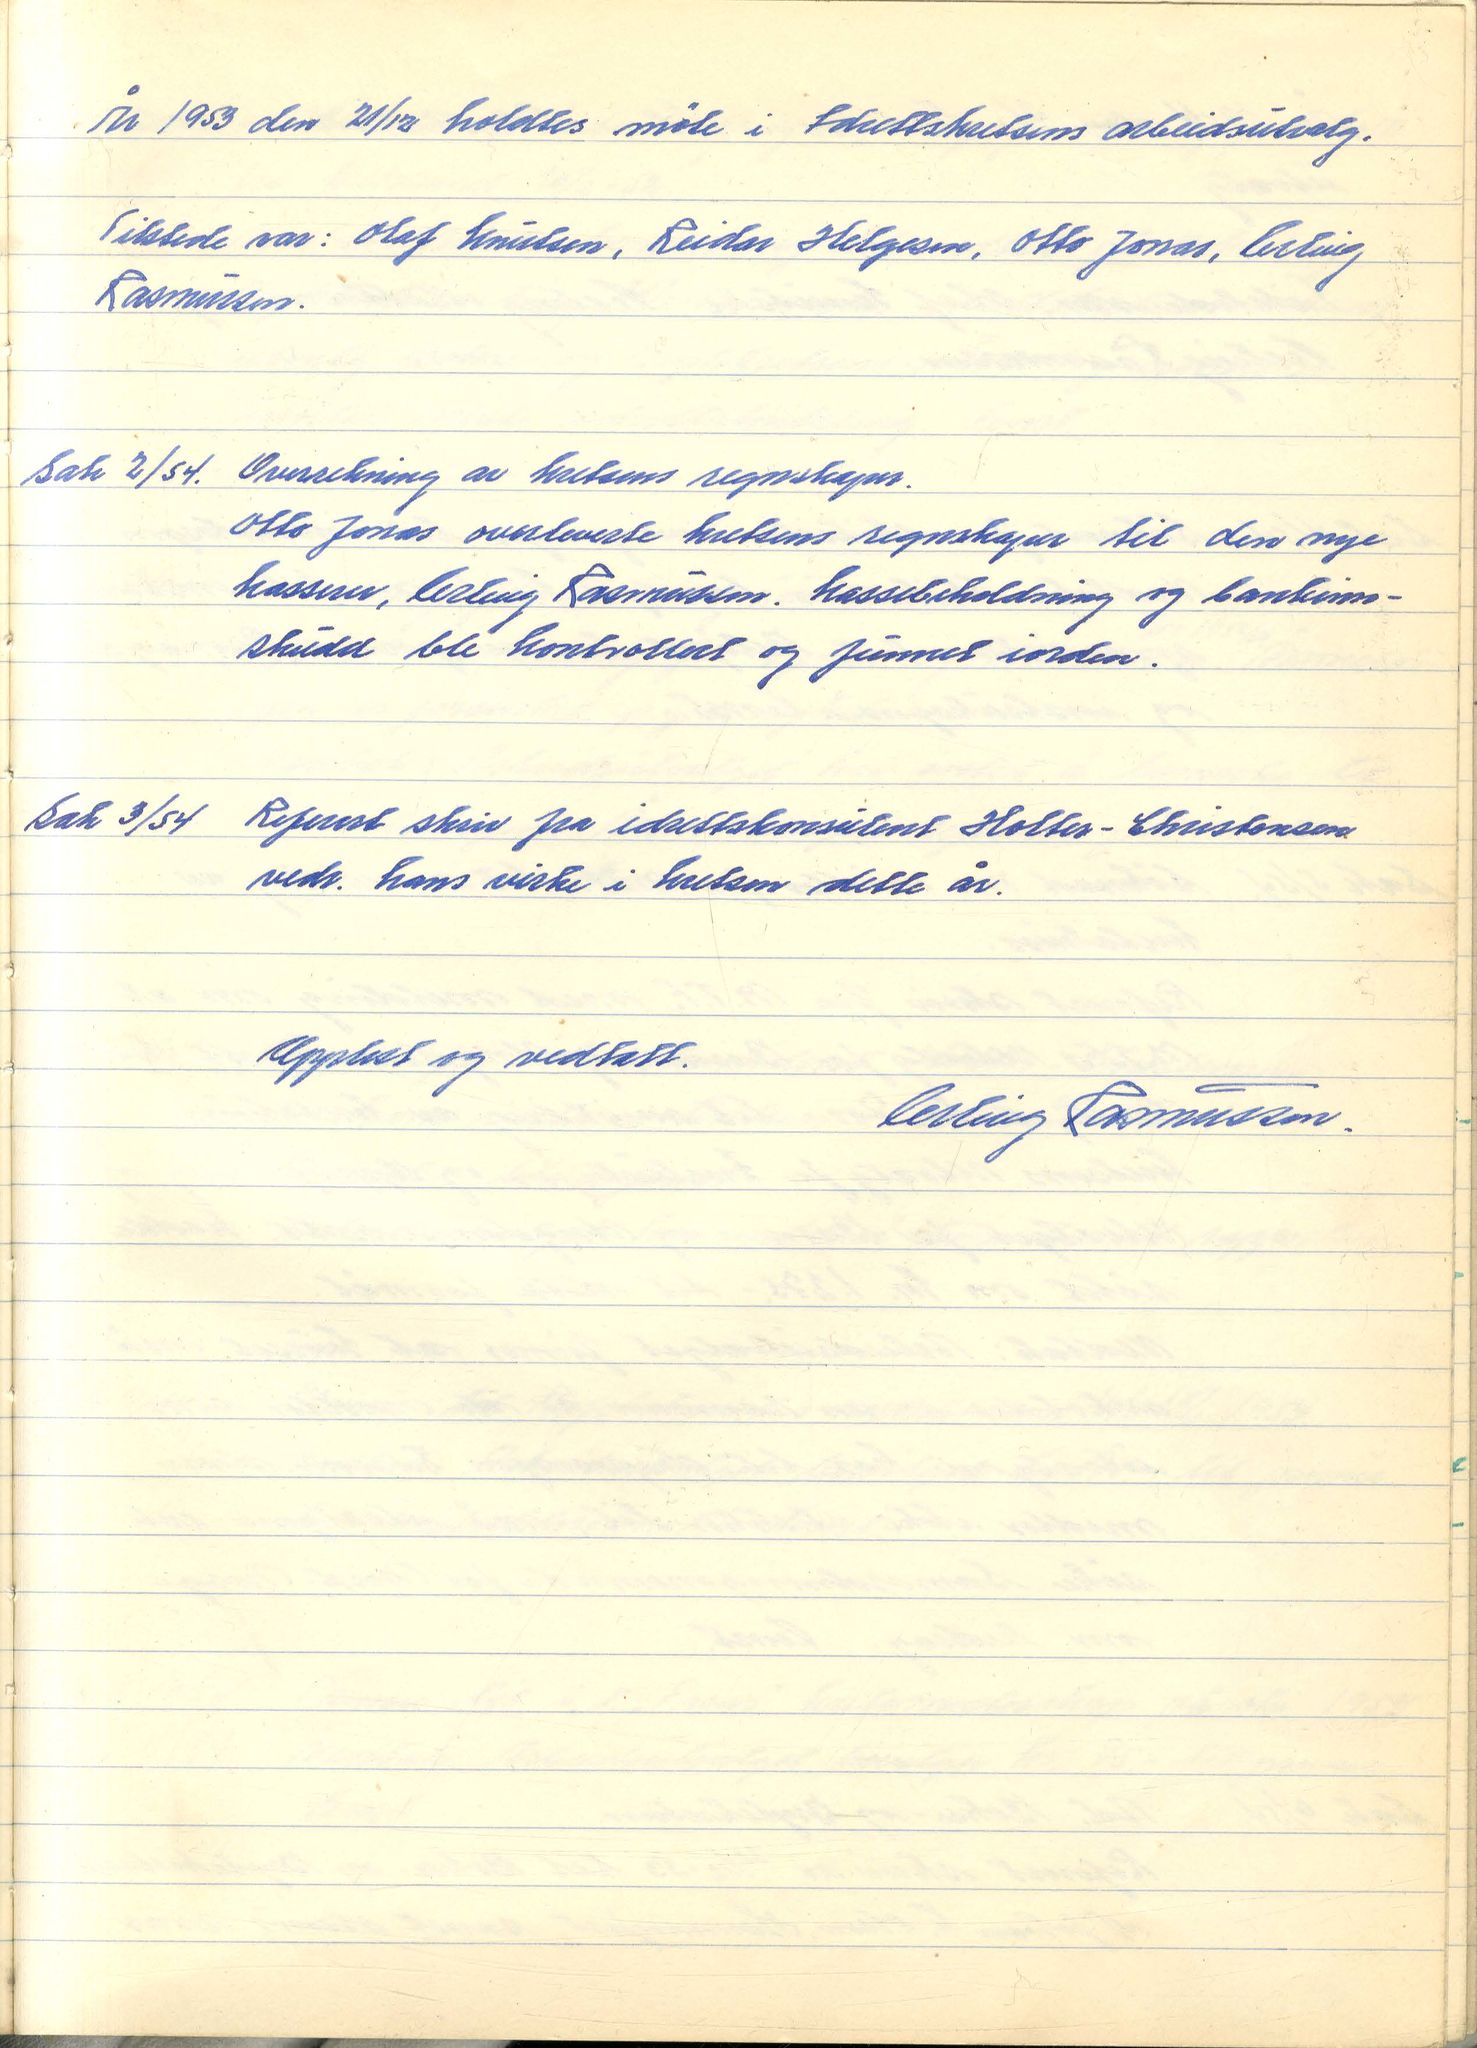 År 1953 den 21/12 holdtes møte i Idrettskretsens arbeidsutvalg.
Tilstede var: Olaf Knutsen, Reidar Helgesen, Otto Jonas, Erling
Rasmussen.
Sak 2/54. Overrekning av kretsens regnskaper.
Otto Jonas overleverte kretsens regnskaper til den nye
kasserer, Erling Rasmussen. Kassebeholdning og bankinn-
skudd ble kontrollert og funnet iorden.
Sak 3/54 Referert skriv fra idrettskonsulent Holter-Christensen
vedr. hans virke i kretsen dette år.
Opplest og vedtatt.
Erling Rasmussen.